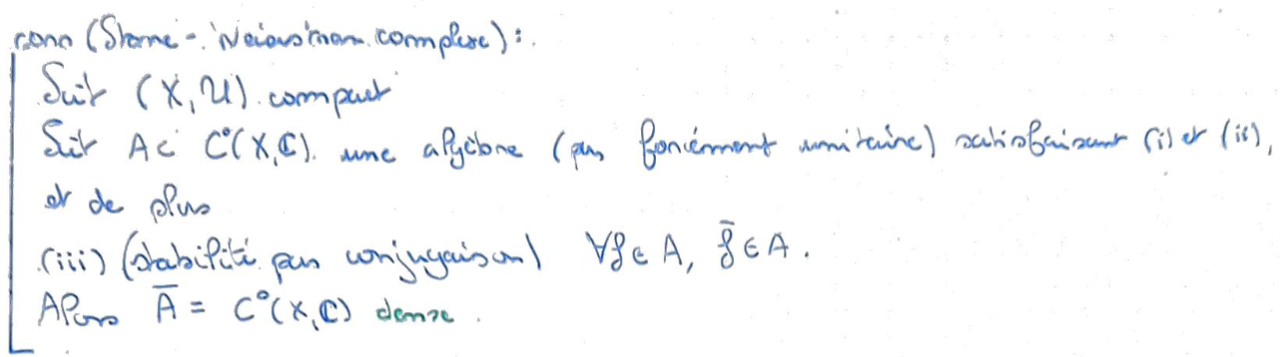 (Stone - Weierstrass complexe) :
Soit (X, U) compact
Soit A ⊂ C⁰(X, ℂ) une algèbre (pas forcément unitaire) satisfaisant (i) et (ii),
et de plus
(iii) (stabilité par conjugaison) ∀f ∈ A, f̄ ∈ A.
Alors Ā = C⁰(X, ℂ) dense.